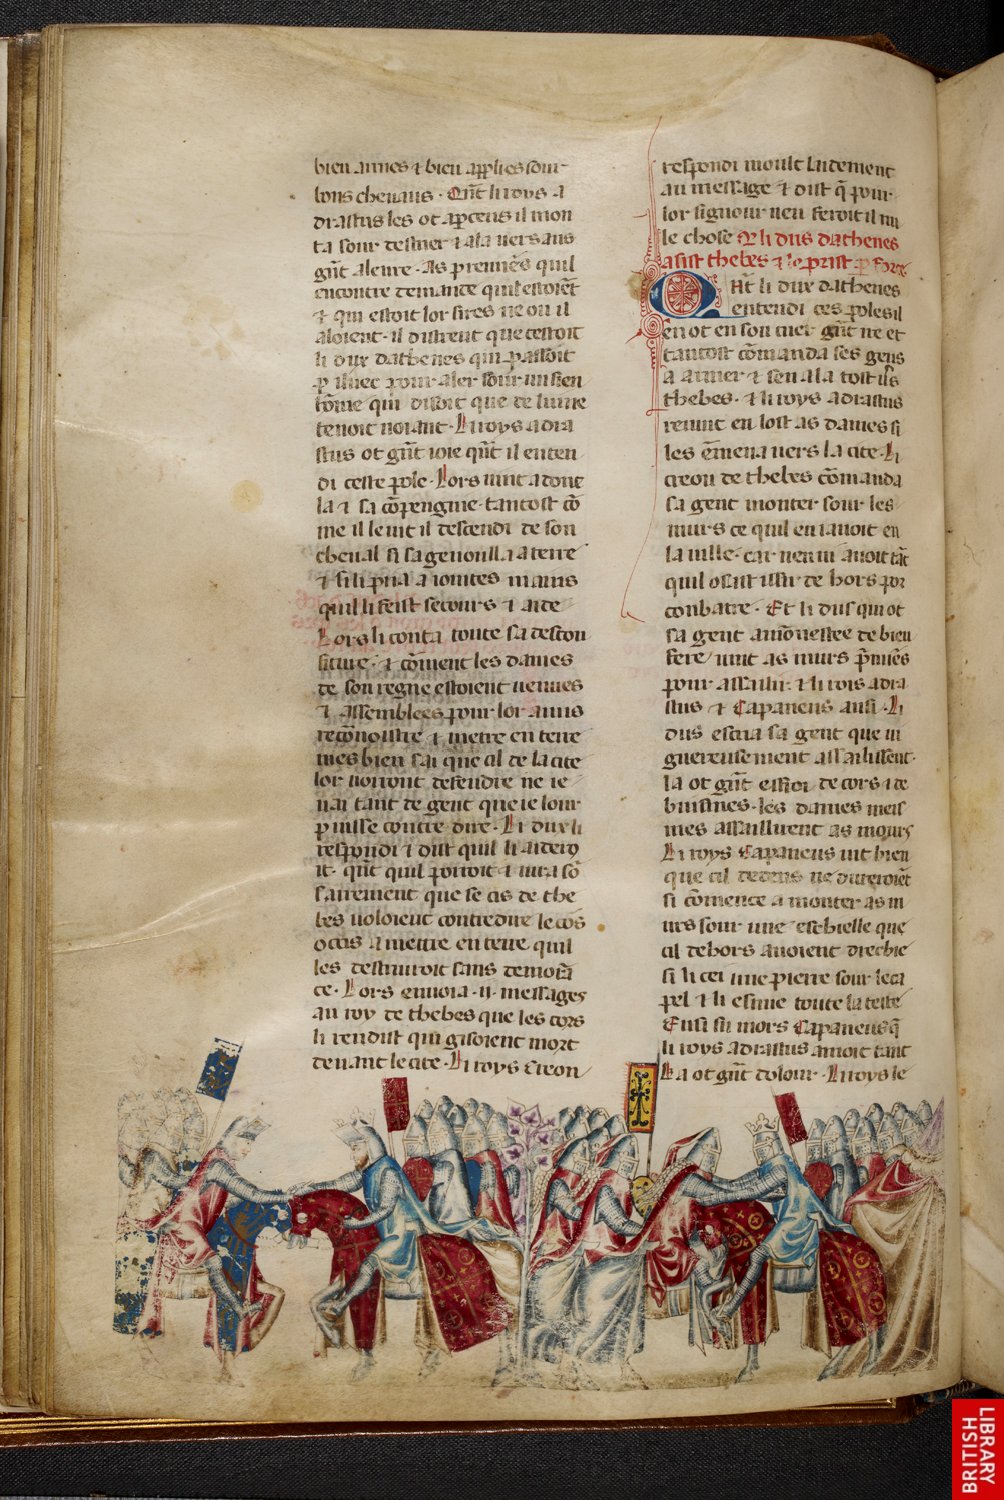 bien armes ⁊ bien applies sour
bons cheuaus · Qn̄t li roys a
drastus les ot aꝑceus il mon
ta sour destrier ⁊ ala uers aus
gn̄t aleure · As premiēs quil
encontre demande quil estoiēt
⁊ qui estoit lor sires ne ou il
aloient · il distrent que cestoit
li dux dathenes qui ꝑ assoit
ꝑ illuec pour aler sour un sien
home qui disoit que de lui ne
tenoit noiant · Li roys adra
stus ot gn̄t ioie qn̄t il enten
di ceste ꝑole · Lors uint adont
la ⁊ sa cōpengnie · tantost cō
me il le uit il descendi de son
cheual si sagenoulla a terre
⁊ si li pria a iointes mains
quil li feist secours ⁊ aide
Lors li conta toute sa descon
fiture · ⁊ cōment les dames
de son regne estoient uenues
⁊ assemblees pour lor amis
recōnoistre ⁊ metre en terre
mes bien sai que cil de la cite
lor uorront defendre ne ie
nai tant de gent que ie lour
puisse contre dire · Li dux li
respondi ⁊ dist quil li aidero
it · qn̄t quil porroit ⁊ iura sō
sairement que se cis de the
bes uoloient contredire le cos
ocis a metre en terre quil
les destruiroit sans demorā
ce · Lors enuoia ·ii· messages
au roy de thebes que les cors
li rendist qui gisoient mort
deuant le cite · Li roys Creon
respondi moult laidement
au message ⁊ dist q̄ pour
lor signour nen feroit il nu
le chose Q̄ li dus dathenes
asist thebes ⁊ le prist ꝑ force
Qn̄t li dux dathenes
entendi ces ꝑoles il
en ot en son cuer gn̄t ire et
tantost cōmanda ses gens
a armer ⁊ sen ala tost uˢs
thebes · ⁊ li roys adrastus
reuint en lost as dames si
les ēmena uers la cite · Li
creon de thebes cōmanda
sa gent monter sour les
murs ce quil en i auoit en
la uille · car nen iii auoit tāt
quil osast issir de hors por
conbatre · Et li dus qui ot
sa gent amōnestee de bien
fere uint as murs pᵐiēs
pour assalir · ⁊ li rois adra
stus ⁊ Capaneus ausi · Li
dus escria sa gent que ui
guereusement assaillissent ·
la ot gn̄t effroi de cors ⁊ de
buisines · les dames meis
mes assailluent as mours
Li roys Capaneus uit bien
que cil dedens ne dureroiēt
si cōmence a monter as m
urs sour une eschielle que
cil dehors auoient drecbie
si li cei une pierre sour le ca
pel ⁊ li esmie toute la teste
Ensi fu mors Capaneus q̄
li roys adrastus amoit tant
La ot gn̄t dolour · Li roys le
BRITISH
LIBRARY